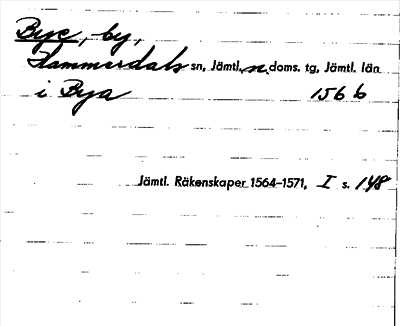 Bye, by,
Hammerdals sn, Jämtl. n. doms. tg, Jämtl. län
i Bya 1566
Jämtl. Räkenskaper 1564–1571, I s. 148